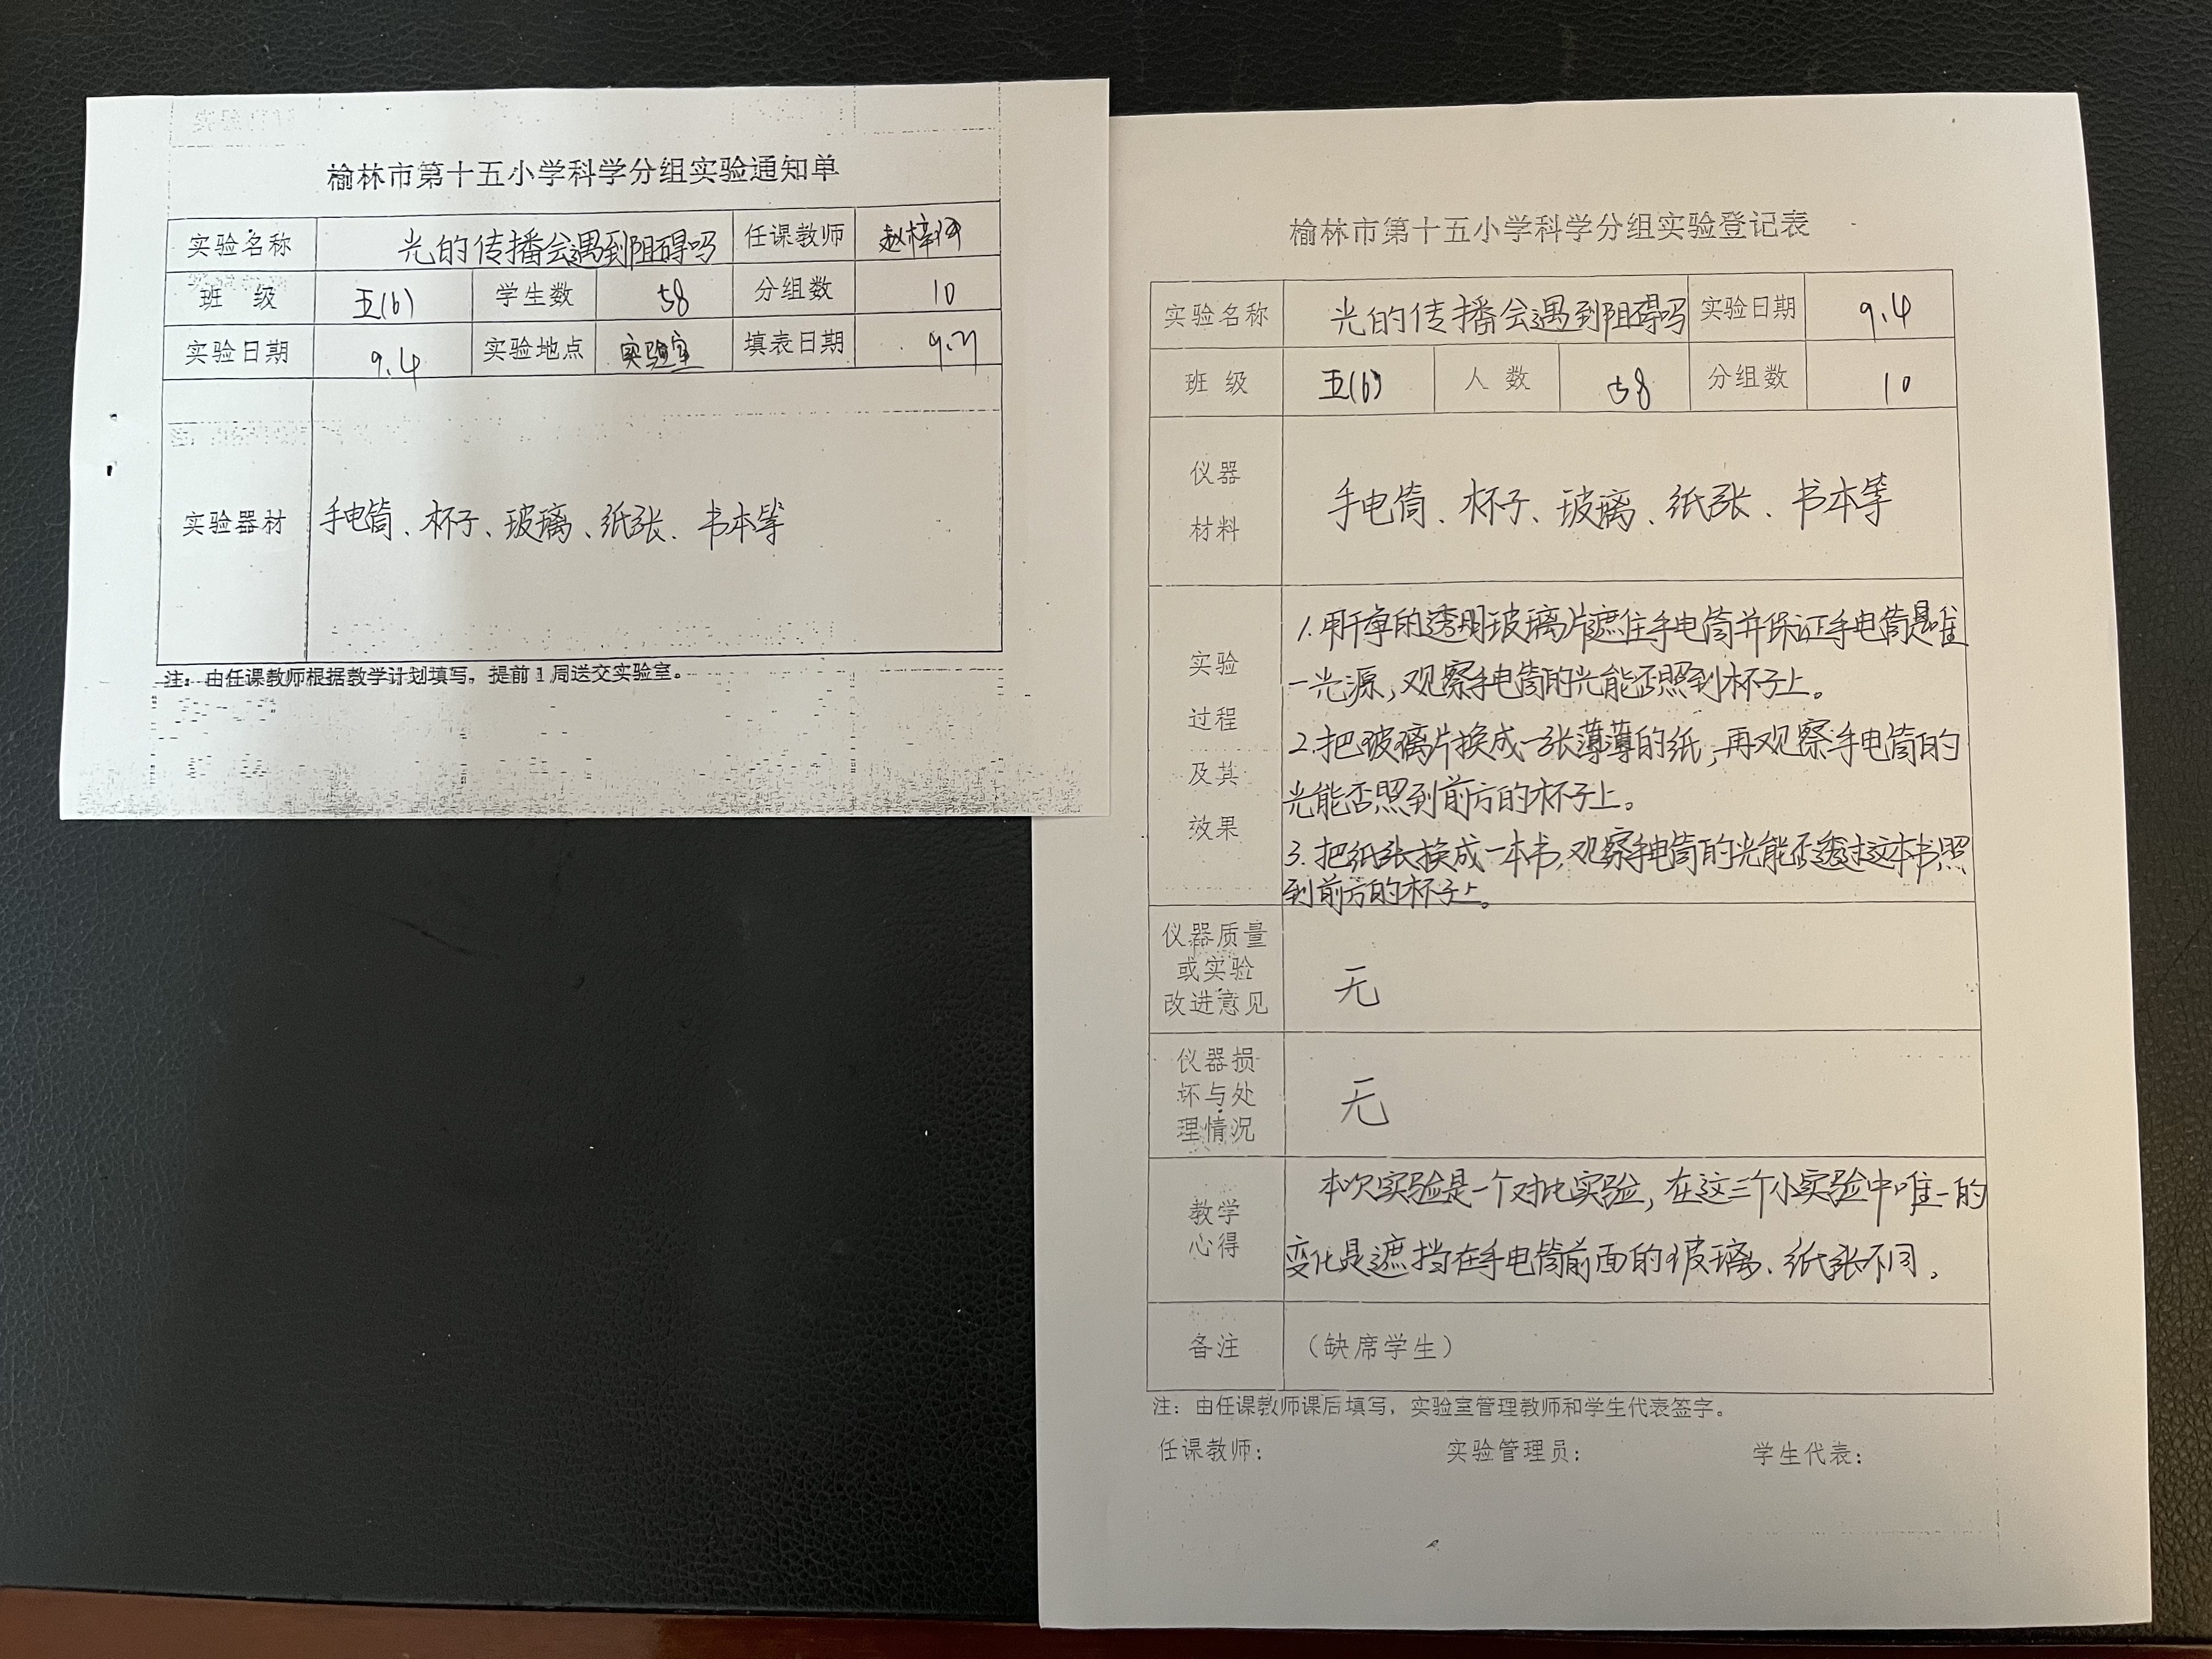 榆林市第十五小学科学分组实验通知单
实验名称 光的传播会遇到阻碍吗 任课教师
班 级 五(6) 学生数 58 分组数 10
实验日期 9.4 实验地点 实验室 填表日期
实验器材 手电筒、杯子、玻璃、纸张、书本等
注：由任课教师根据教学计划填写，提前1周送交实验室。
榆林市第十五小学科学分组实验登记表
实验名称 光的传播会遇到阻碍吗 实验日期 9.4
班 级 五(6) 人 数 58 分组数 10
仪器
材料
手电筒、杯子、玻璃、纸张、书本等
实验
过程
及其
效果
1.用干净的透明玻璃片遮住手电筒并保证手电筒是唯
一光源，观察手电筒的光能否照到杯子上。
2.把玻璃片换成一张薄薄的纸，再观察手电筒的
光能否照到前方的杯子上。
3.把纸张换成一本书，观察手电筒的光能否透过这本书照
到前方的杯子上。
仪器质量
或实验
改进意见
无
仪器损
坏与处
理情况
无
教学
心得
本次实验是一个对比实验，在这三个小实验中唯一的
变化是遮挡在手电筒前面的玻璃、纸张不同。
备注 （缺席学生）
注：由任课教师课后填写，实验室管理教师和学生代表签字。
任课教师： 实验管理员： 学生代表：